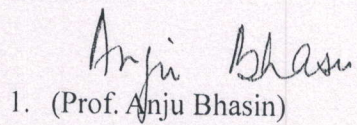 Anju Bhasin
1. (Prof. Anju Bhasin)